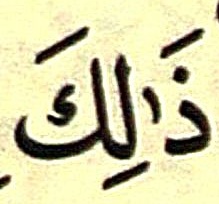 ذَٰلِكَ